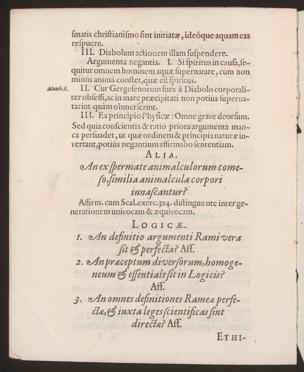 smatis christianismo sint initiatæ, ideóque aquam eas
respuere.
III. Diabolum actionem illam suspendere.
Argumenta negantia. I. Si spiritus in causâ, se-
quitur omnem hominem aquæ supernatare, cum non
minùs anima constet, quæ est spiritus.
Matth. 8. II. Cur Gergesenorum sues à Diabolo corporali-
ter obsessi, ac in mare præcipitati non potius superna-
tarint quàm obmerserint.
III. Ex principio Physicæ: Omne grave deorsum.
Sed quia conscientia & ratio priora argumenta man-
ca persuadet, ut quæ ordinem & principia naturæ in-
vertant, potiùs negantium affirmabo sententiam.
ALIA.
An ex spermate animalculorum come-
so, similia animalcula corpori
innascantur?
Affirm. cum Scal. exerc. 324. distinguente inter ge-
nerationem univocam & æquivocam.
LOGICÆ.
1. An definitio argumenti Rami vera
sit & perfecta? Aff.
2. An præceptum diversorum, homoge-
neum & essentiale sit in Logicis?
Aff.
3. An omnes definitiones Rameæ perfe-
ctæ, & juxta leges scientificas sint
directæ? Aff.
ETHI-